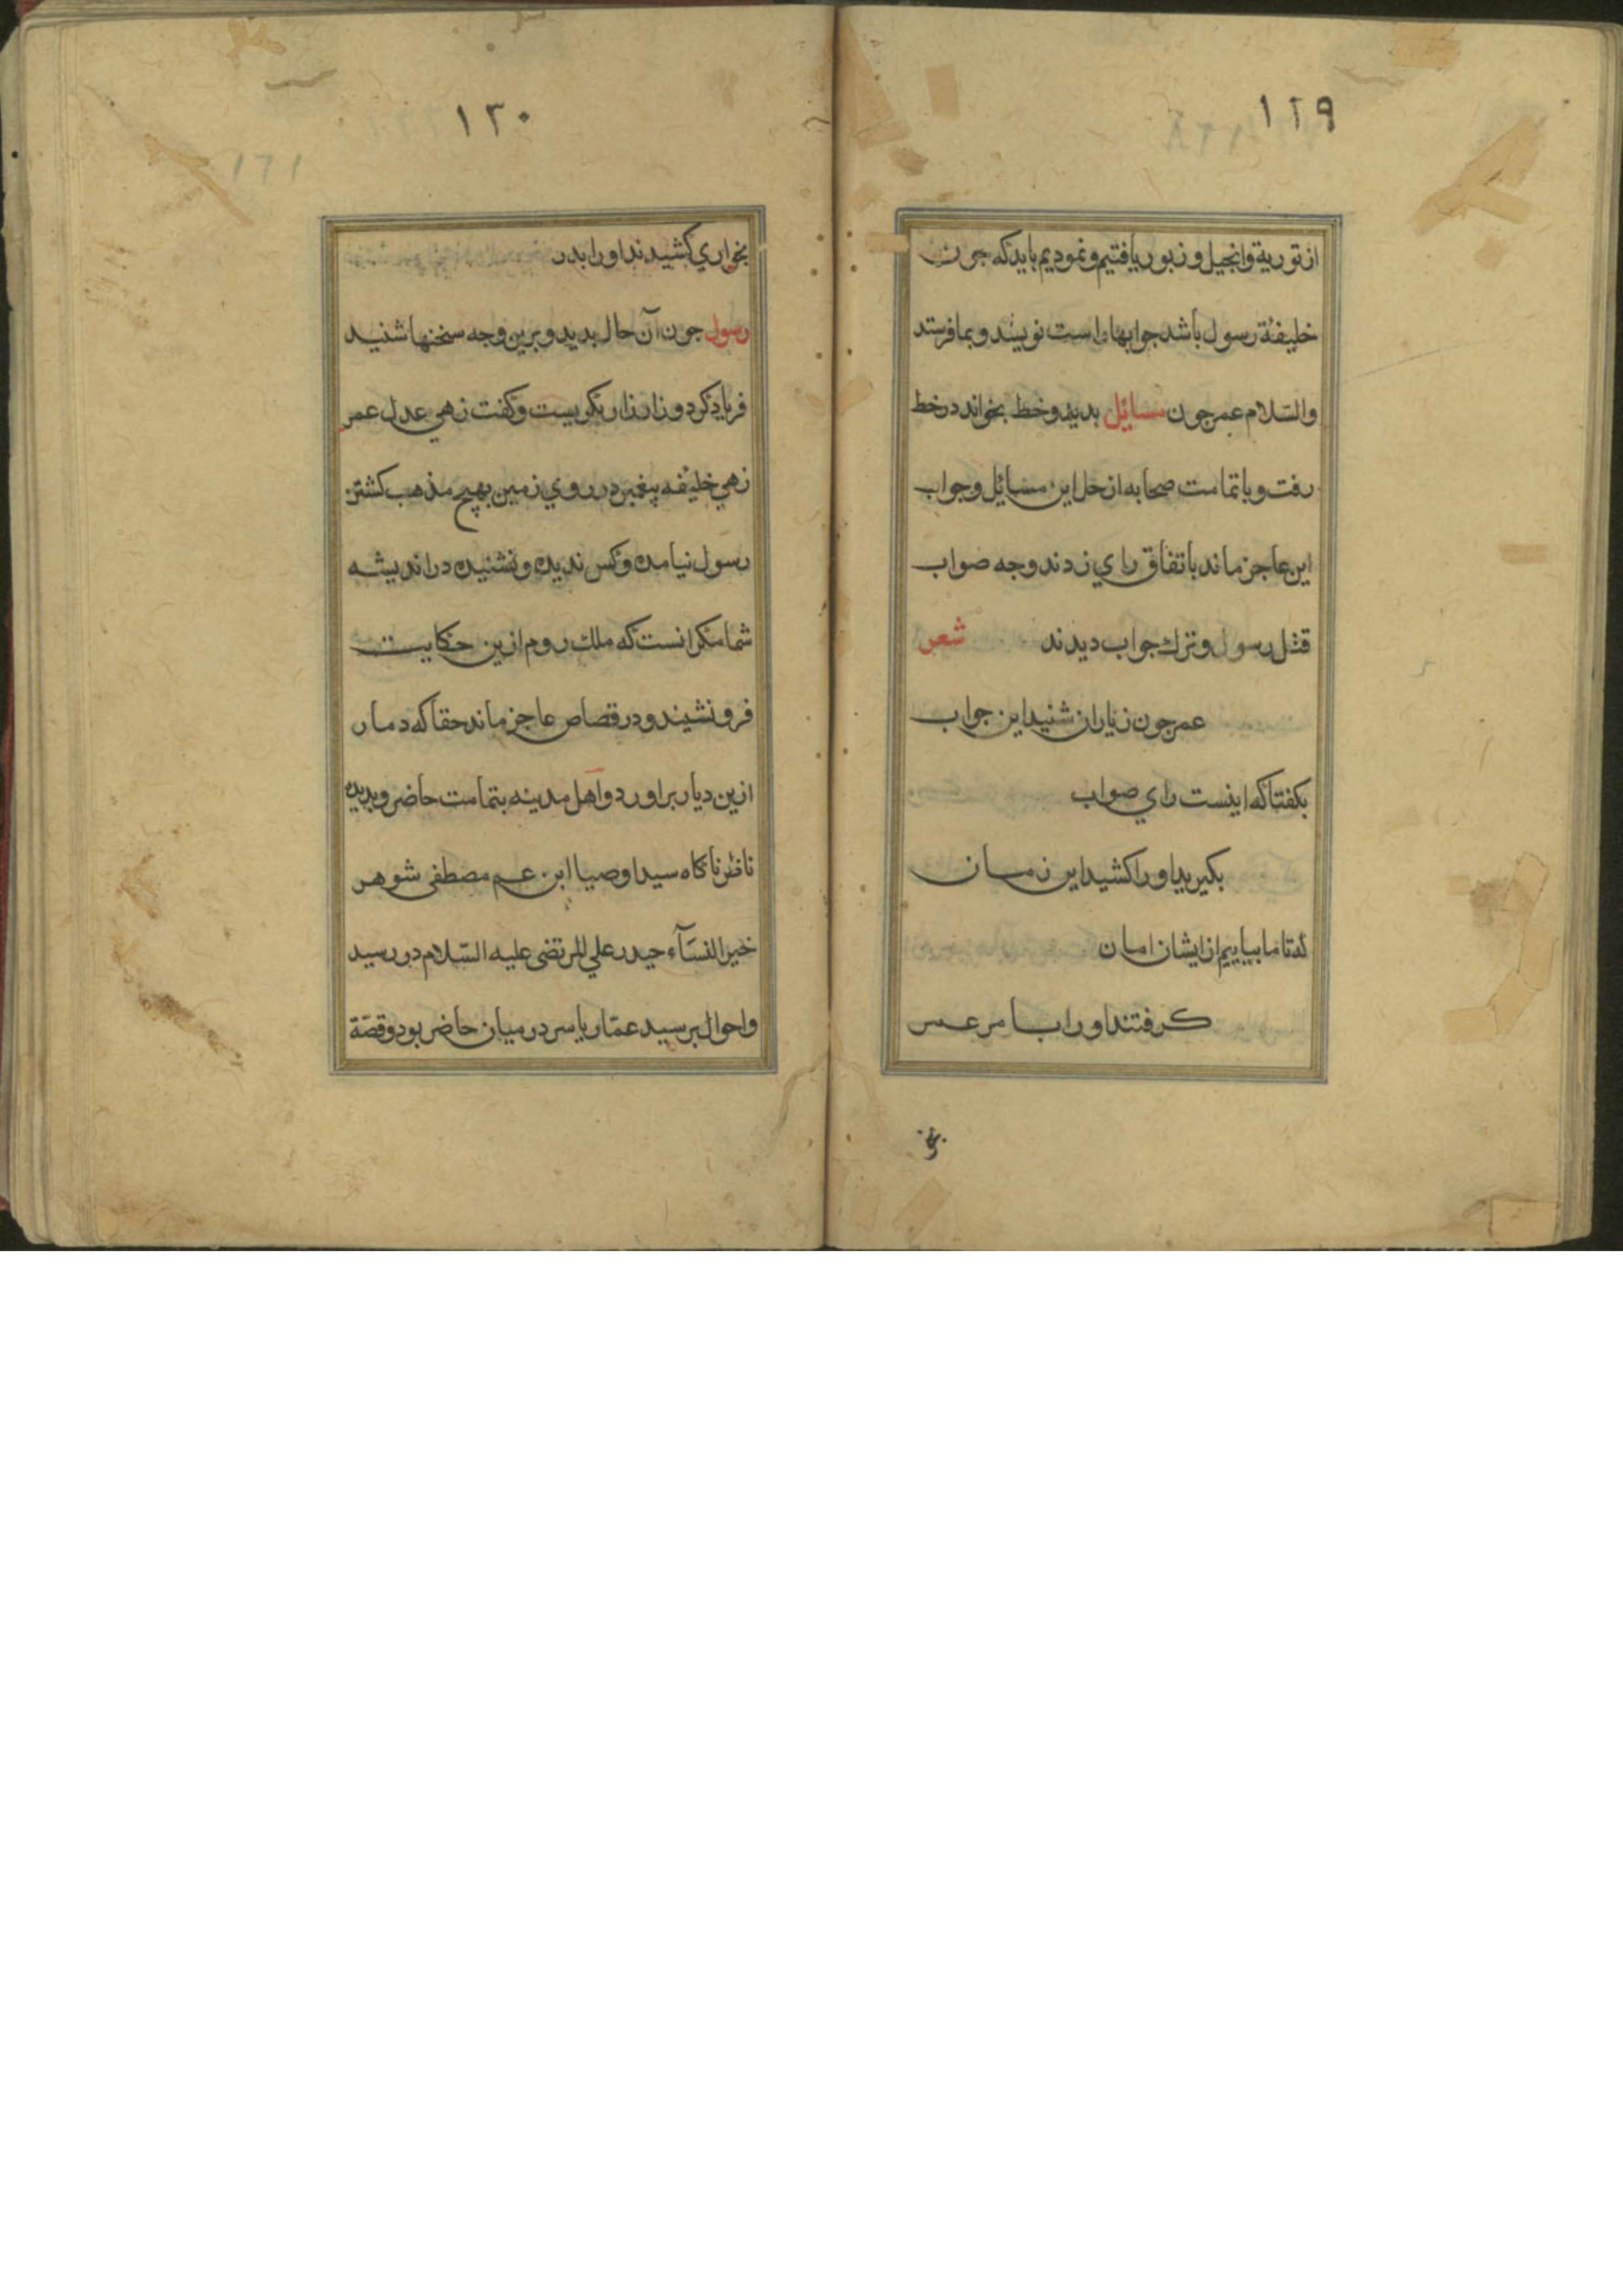 ١٢٩
از تورية وانجيل و زبور يافتيم و نموديم بايد كه جون
خليفۀ رسول باشد جوابهاء راست نويسد و بما فرستد
والسّلام عمر جون مسائيل بديد و خط بخواند در خط
رفت و با تمامت صحابه از حل اين مسائيل و جواب
اين عاجز ماند باتفاق راي زدند و جه صواب
قتل رسول و ترك جواب ديدند شعر
عمر جون ز ياران شنيد اين جواب
بكفتا كه اينست راي صواب
بكيريد او را كشيد اين زمان
كه تا ما بيابيم از ايشان امان
كرفتند او را با مر عمر
١٣٠
١٦١
بخواري كشيدند او را بدر
رسول جون آن حال بديد و برين وجه سخنها شنيد
فرياد كرد و زار زار بكريست و كفت زهي عدل عمر
زهي خليفه پيغمبر در روي زمين بهيج مذهب كشتن
رسول نيامده و كس نديده و نشنيده در انديشه
شما مكر انست كه ملك روم ازين حكايت
فرو نشيند و در قصاص عاجز ماند حقا كه دمار
ازين ديار براورد و اهل مدينه بتمامت حاضر و بديده
ناظر ناكاه سيد اوصيا ابن عم مصطفى شوهر
خير النسآء حيدر علي المرتضى عليه السّلام در رسيد
و احوال برسيد عمّار ياسر در ميان حاضر بود و قصّة